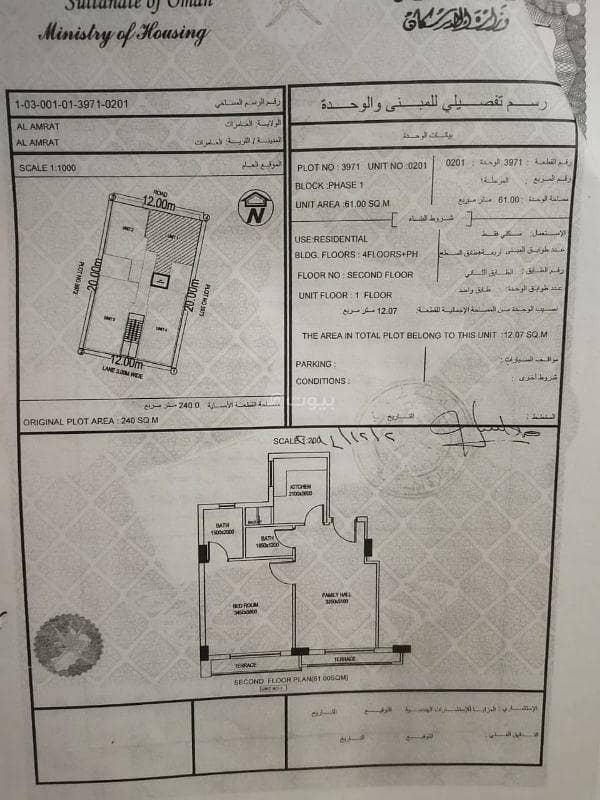 Sultanate of Oman
Ministry of Housing
وزارة الإسكان
1-03-001-01-3971-0201 رقم الرسم المساحي
AL AMRAT الولاية: العامرات
AL AMRAT المدينة / القرية: العامرات
SCALE 1:1000 الموقع العام
ROAD
12.00m
UNIT 2
UNIT 1
20.00m
20.00m
PLOT NO 3972
UNIT 3
UNIT 4
12.00m
LANE 3.00M WIDE
N
مساحة القطعة الأصلية 240.0 متر مربع
ORIGINAL PLOT AREA : 240 SQ.M
رسم تفصيلي للمبنى والوحدة
بيانات الوحدة
PLOT NO : 3971 UNIT NO :0201 رقم القطعة : 3971 الوحدة : 0201
BLOCK :PHASE 1 رقم المربع : المرحلة ١
UNIT AREA :61.00 SQ.M مساحة الوحدة : 61.00 متر مربع
شروط البناء
USE:RESIDENTIAL الإستعمال: سكني فقط
BLDG. FLOORS : 4FLOORS+PH عدد طوابق المبنى
FLOOR NO : SECOND FLOOR رقم الطابق : الطابق الثاني
UNIT FLOOR : 1 FLOOR عدد طوابق الوحدة: طابق واحد
نصيب الوحدة من المساحة الإجمالية للقطعة: 12.07 متر مربع
THE AREA IN TOTAL PLOT BELONG TO THIS UNIT :12.07 SQ.M
PARKING : مواقف السيارات :
CONDITIONS : شروط أخرى :
المخطط : التاريخ :
بيوت
SCALE 1:200
KITCHEN
BATH
1500x2000
BATH
FAMILY HALL
BED ROOM
TERRACE
TERRACE
SECOND FLOOR PLAN(61.00SQM)
الإستشاري : المزايا للإستشارات الهندسية التوقيع التاريخ
التوقيع التاريخ